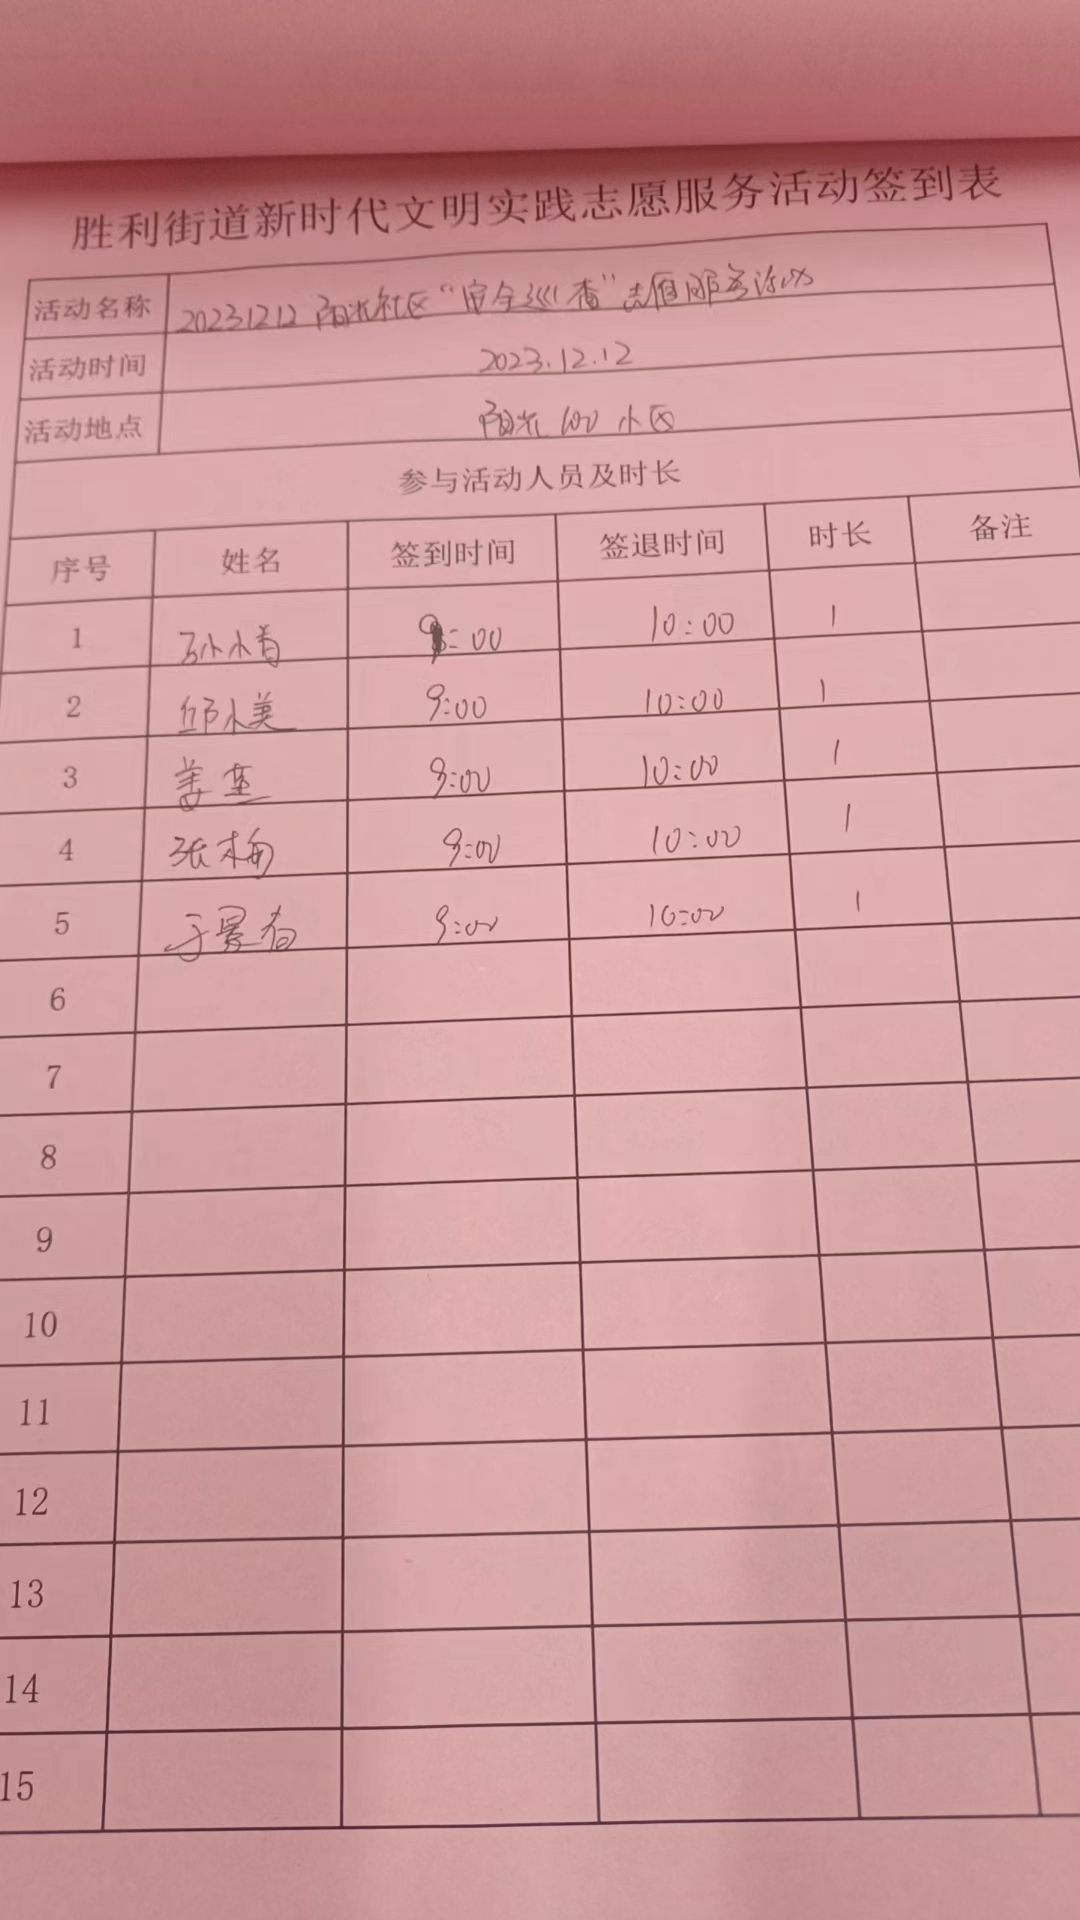 胜利街道新时代文明实践志愿服务活动签到表
活动名称 20231212 阳光社区“安全巡查”志愿服务活动
活动时间 2023.12.12
活动地点 阳光100小区
参与活动人员及时长
序号 姓名 签到时间 签退时间 时长 备注
1 孙小青 9:00 10:00 1
2 邱小美 9:00 10:00 1
3 姜 9:00 10:00 1
4 张梅 9:00 10:00 1
5 于景春 9:00 10:00 1
6
7
8
9
10
11
12
13
14
15